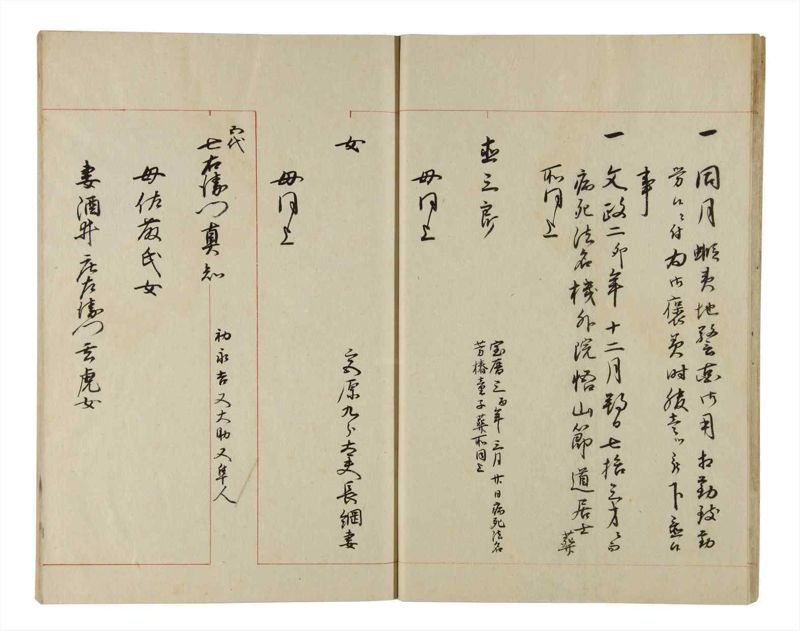 一 同月蝦夷地警固御用相勤致勤
労候ニ付為御褒美時服壱ツ被下置候
事
一 文政二卯年十二月朔日七拾三才ニ而
病死法名機外院悟山節道居士葬
所同上
直三郎
宝暦三酉年三月廿日病死法名
芳椿童子葬所同上
母同上
女
安原九郎太夫長綱妻
母同上
六代
七右衛門真知
初永吉又大助又隼人
母佐藤氏女
妻酒井庄左衛門玄虎女